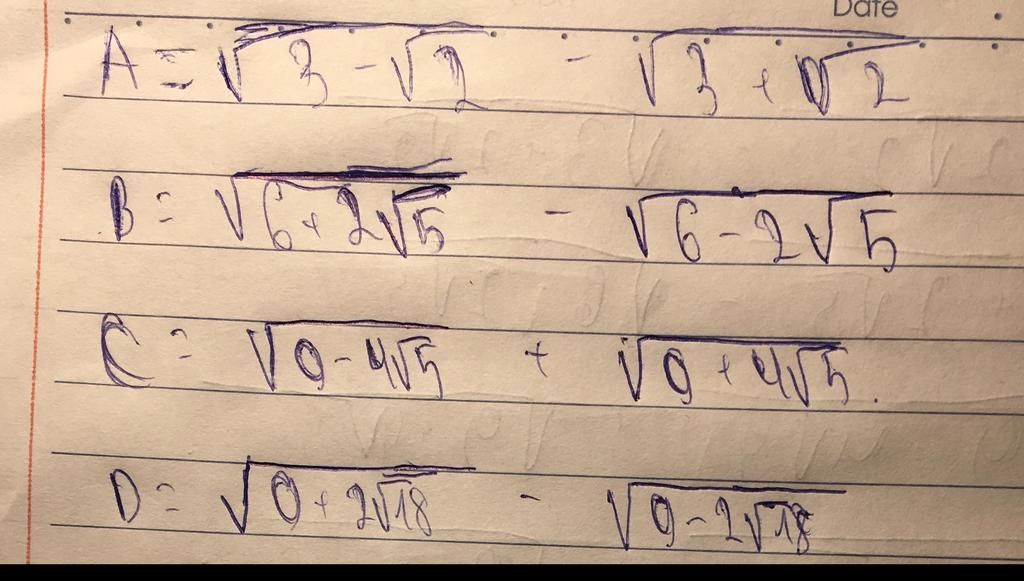 Date
A = √(3 - √2) - √(3 + √2)
B = √(6 + 2√5) - √(6 - 2√5)
C = √(9 - 4√5) + √(9 + 4√5).
D = √(9 + 2√18) - √(9 - 2√18)